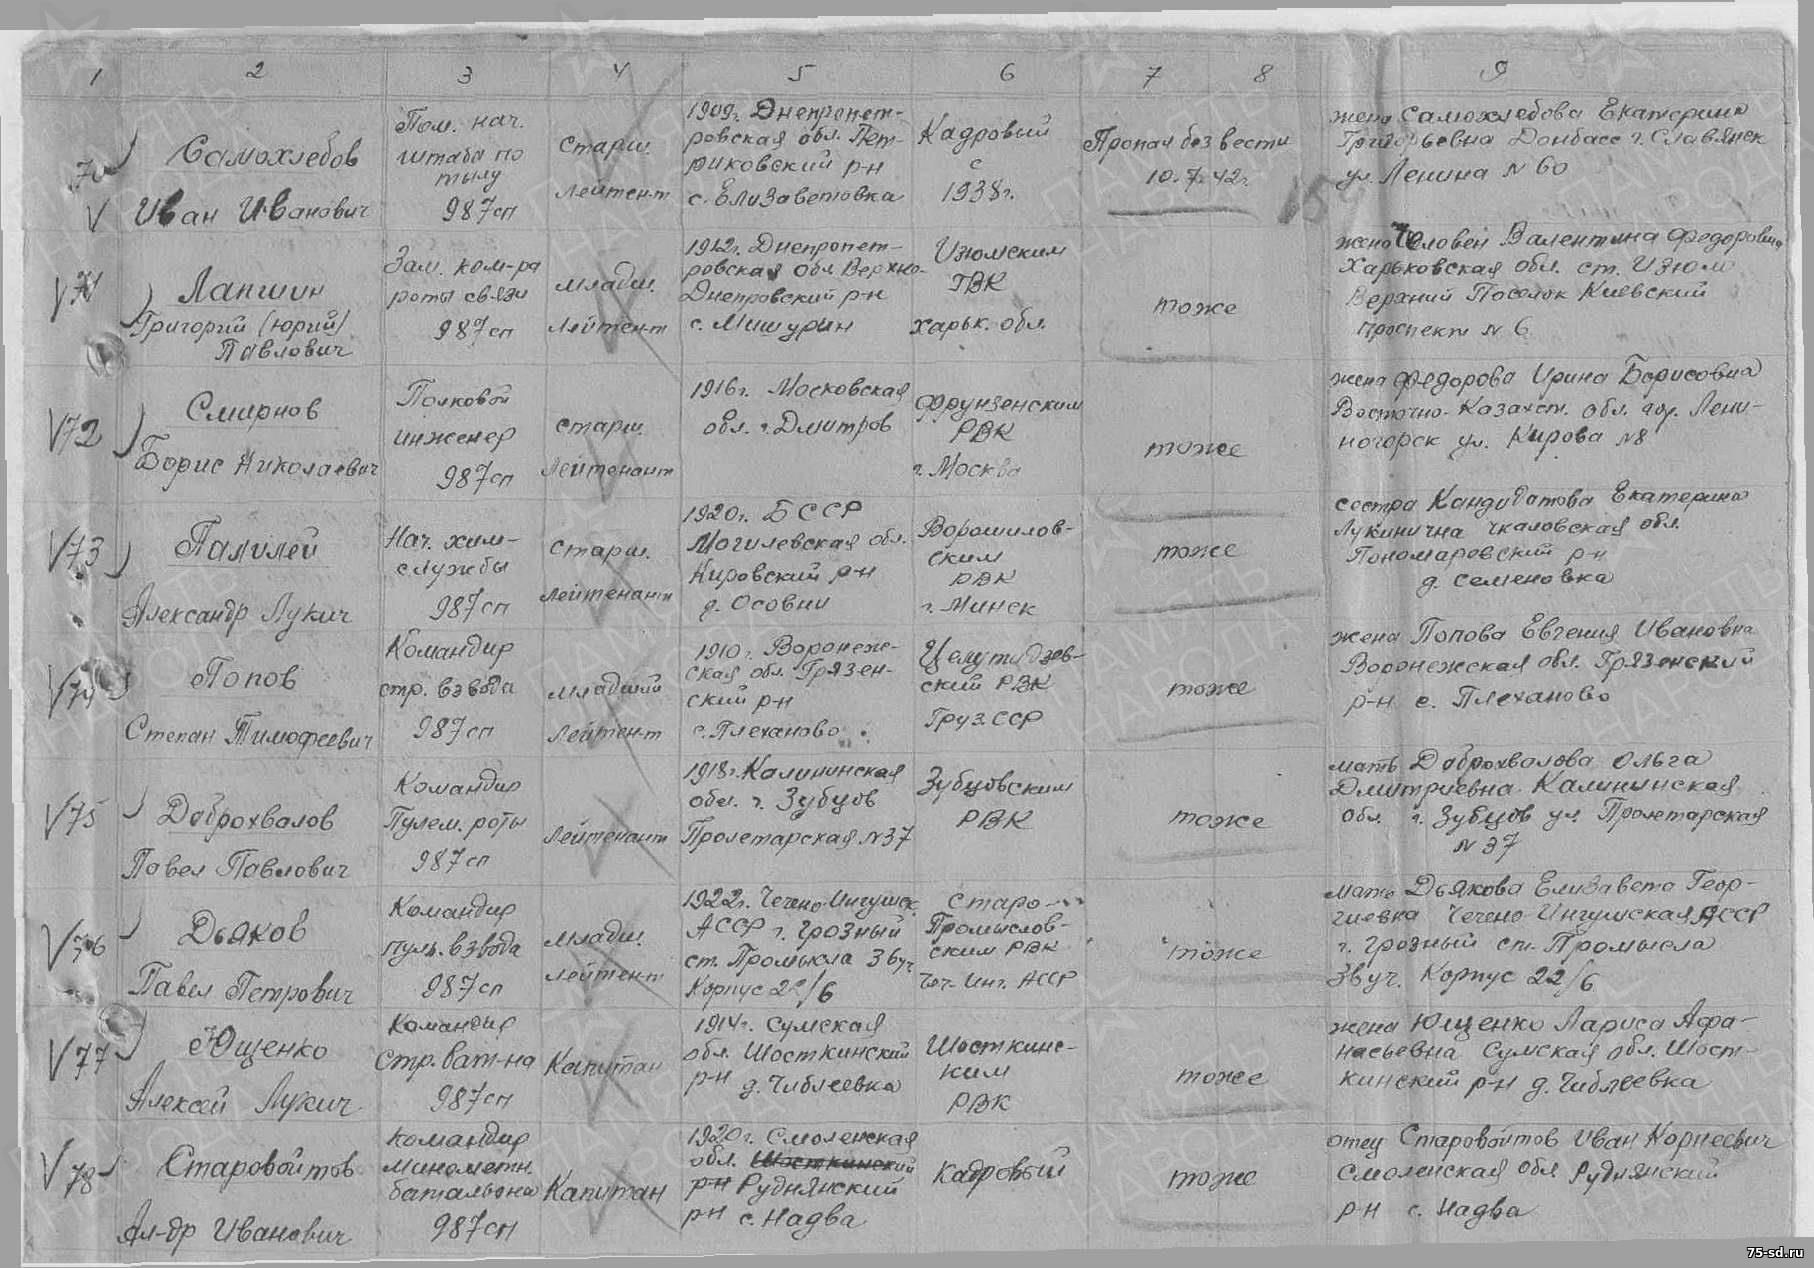 1 2 3 4 5 6 7 8 9
70
V
Самохлебов
Иван Иванович
Пом. нач.
штаба по
тылу
987сп
Старш.
Лейтен-т
1909г. Днепропет-
ровская обл. Пет-
риковский р-н
с. Елизаветовка
Кадровый
с
1938г.
Пропал без вести
10.7.42г.
жена Самохлебова Екатерина
Григорьевна Донбасс г. Славянск
ул. Ленина N 60
V71
Лапшин
Григорий (Юрий)
Павлович
Зам. ком-ра
роты связи
987сп
Младш.
Лейтен-т
1912г. Днепропет-
ровская обл. Верхно-
Днепровский р-н
с. Мишурин
Изюмским
ГВК
Харьк. обл.
тоже
жена Человей Валентина Федоровна
Харьковская обл. ст. Изюм
Верхний Поселок Киевский
проспект N 6
V72
Смирнов
Борис Николаевич
Полковой
инженер
987сп
Старш.
Лейтенант
1916г. Московская
обл. г. Дмитров
Фрунзенским
РВК
г. Москва
тоже
жена Федорова Ирина Борисовна
Восточно-Казахст. обл. гор. Лени-
ногорск ул. Кирова N8
V73
Александр Лукич
Нач. хим-
службы
987сп
Старш.
Лейтенант
1920г. БССР
Могилевская обл.
Кировский р-н
д. Осовни
Ворошилов-
ским
РВК
г. Минск
тоже
сестра Кандидатова Екатерина
Лукинична Чкаловская обл.
Пономаревский р-н
д. Семеновка
V74
Попов
Степан Тимофеевич
Командир
стр. взвода
987сп
Младший
Лейтен-т
1910г. Воронеж-
ская обл. Грязен-
ский р-н
с. Плеханово
ский РВК
Груз.ССР
тоже
жена Попова Евгения Ивановна
Воронежская обл. Грязенский
р-н с. Плеханово
V75
Доброхвалов
Павел Павлович
Командир
Пулем. роты
987сп
Лейтенант
1918г. Калининская
обл. г. Зубцов
Пролетарская N37
Зубцовским
РВК
тоже
мать Доброхвалова Ольга
Дмитриевна Калининская
обл. г. Зубцов ул. Пролетарская
N 37
V76
Дьяков
Павел Петрович
Командир
пуль. взвода
987сп
Младш.
Лейтен-т
1922г. Чечено-Ингушск.
АССР г. Грозный
ст. Промысла Звуч.
Корпус 22/6
Старо-
Промыслов-
ским РВК
Чеч. Инг. АССР
тоже
мать Дьякова Елизавета Геор-
гиевна Чечено-Ингушская АССР
г. Грозный ст. Промысла
Звуч. Корпус 22/6
V77
Ющенко
Алексей Лукич
Командир
Стр. бат-на
987сп
Капитан
1914г. Сумская
обл. Шосткинский
р-н д. Чиблеевка
Шосткинс-
ким
РВК
тоже
жена Ющенко Лариса Афа-
насьевна Сумская обл. Шост-
кинский р-н д. Чиблеевка
V78
Старовойтов
Ал-др Иванович
Командир
Минометн.
батальона
987сп
Капитан
1920г. Смоленская
обл. Шосткинский
рн Руднянский
р-н с. Надва
Кадровый
тоже
отец Старовойтов Иван Корнеевич
Смоленская обл. Руднянский
р-н с. Надва
75-sd.ru